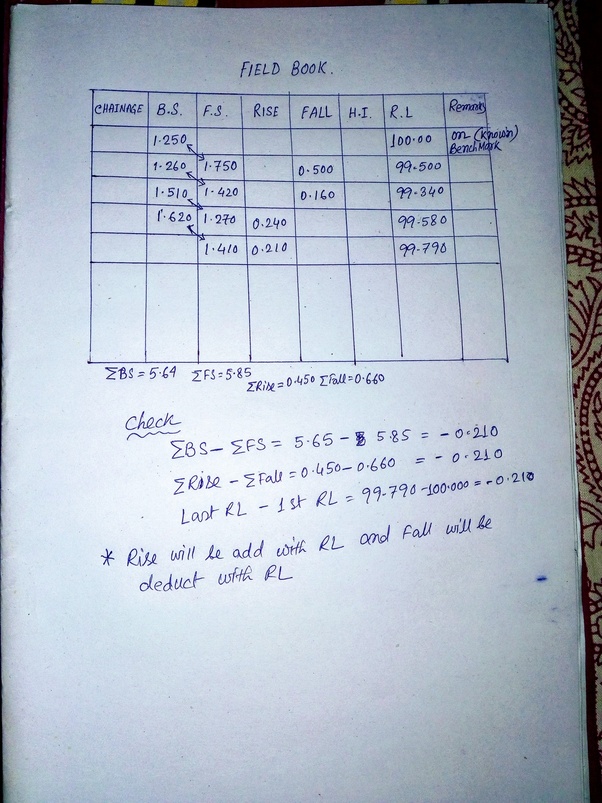 FIELD BOOK.
CHAINAGE B.S. F.S. RISE FALL H.I. R.L Remarks
1.250 100.00 on (known) BenchMark
1.260 1.750 0.500 99.500
1.510 1.420 0.160 99.340
1.620 1.270 0.240 99.580
1.410 0.210 99.790
ΣBS = 5.64 ΣFS = 5.85 ΣRise = 0.450 ΣFall = 0.660
Check
ΣBS - ΣFS = 5.65 - 5.85 = - 0.210
ΣRise - ΣFall = 0.450 - 0.660 = - 0.210
Last RL - 1st RL = 99.790 - 100.000 = - 0.210
* Rise will be add with RL and Fall will be
deduct with RL